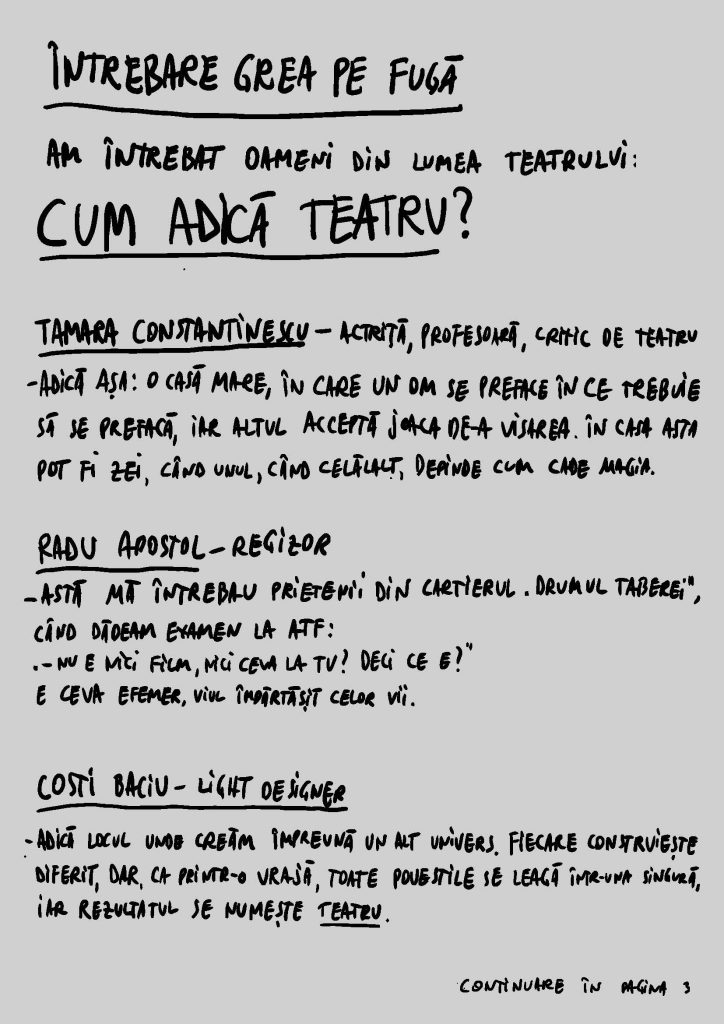 ÎNTREBARE GREA PE FUGĂ
AM ÎNTREBAT OAMENI DIN LUMEA TEATRULUI:
CUM ADICĂ TEATRU?
TAMARA CONSTANTINESCU – ACTRIȚĂ, PROFESOARĂ, CRITIC DE TEATRU
-ADICĂ AȘA: O CASĂ MARE, ÎN CARE UN OM SE PREFACE ÎN CE TREBUIE
SĂ SE PREFACĂ, IAR ALTUL ACCEPTĂ JOACA DE-A VISAREA. ÎN CASA ASTA
POT FI ZEI, CÂND UNUL, CÂND CELĂLALT, DEPINDE CUM CADE MAGIA.
RADU APOSTOL – REGIZOR
-ASTĂ MĂ ÎNTREBAU PRIETENII DIN CARTIERUL „DRUMUL TABEREI",
CÂND DĂDEAM EXAMEN LA ATF:
„- NU E NICI FILM, NICI CEVA LA TV? DECI CE E?"
E CEVA EFEMER, VIUL ÎMPĂRTĂȘIT CELOR VII.
COSTI BACIU – LIGHT DESIGNER
-ADICĂ LOCUL UNDE CREĂM ÎMPREUNĂ UN ALT UNIVERS. FIECARE CONSTRUIEȘTE
DIFERIT, DAR, CA PRINTR-O VRAJĂ, TOATE POVESTILE SE LEAGĂ ÎNTR-UNA SINGURĂ,
IAR REZULTATUL SE NUMEȘTE TEATRU.
CONTINUARE ÎN PAGINA 3